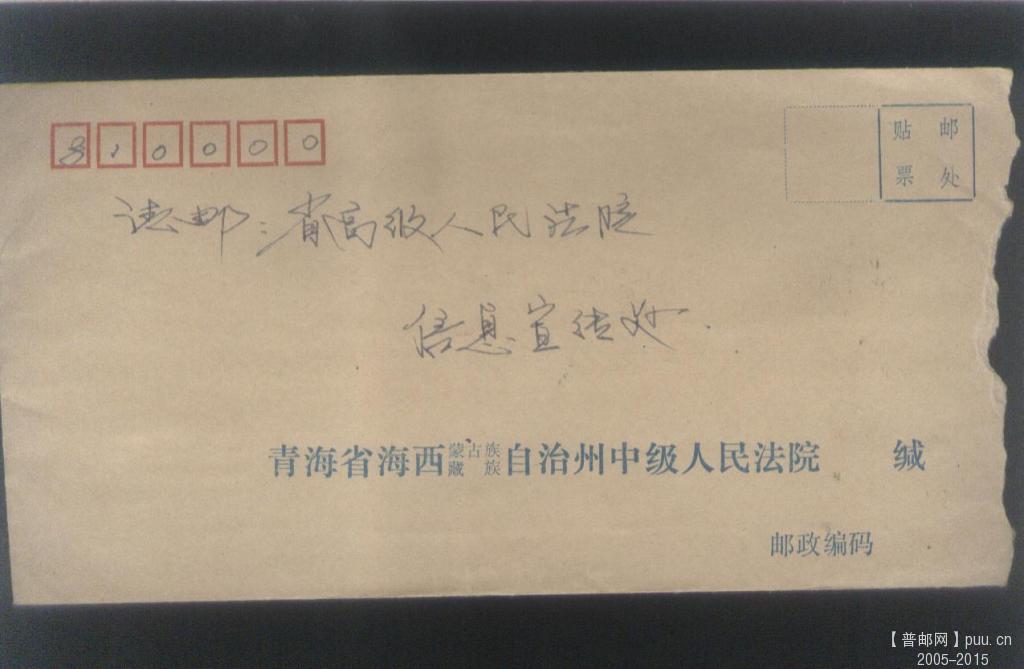 810000
贴邮
票处
请邮:省高级人民法院
信息宣传处.
青海省海西蒙古族藏族自治州中级人民法院 缄
邮政编码
【普邮网】puu.cn
2005-2015